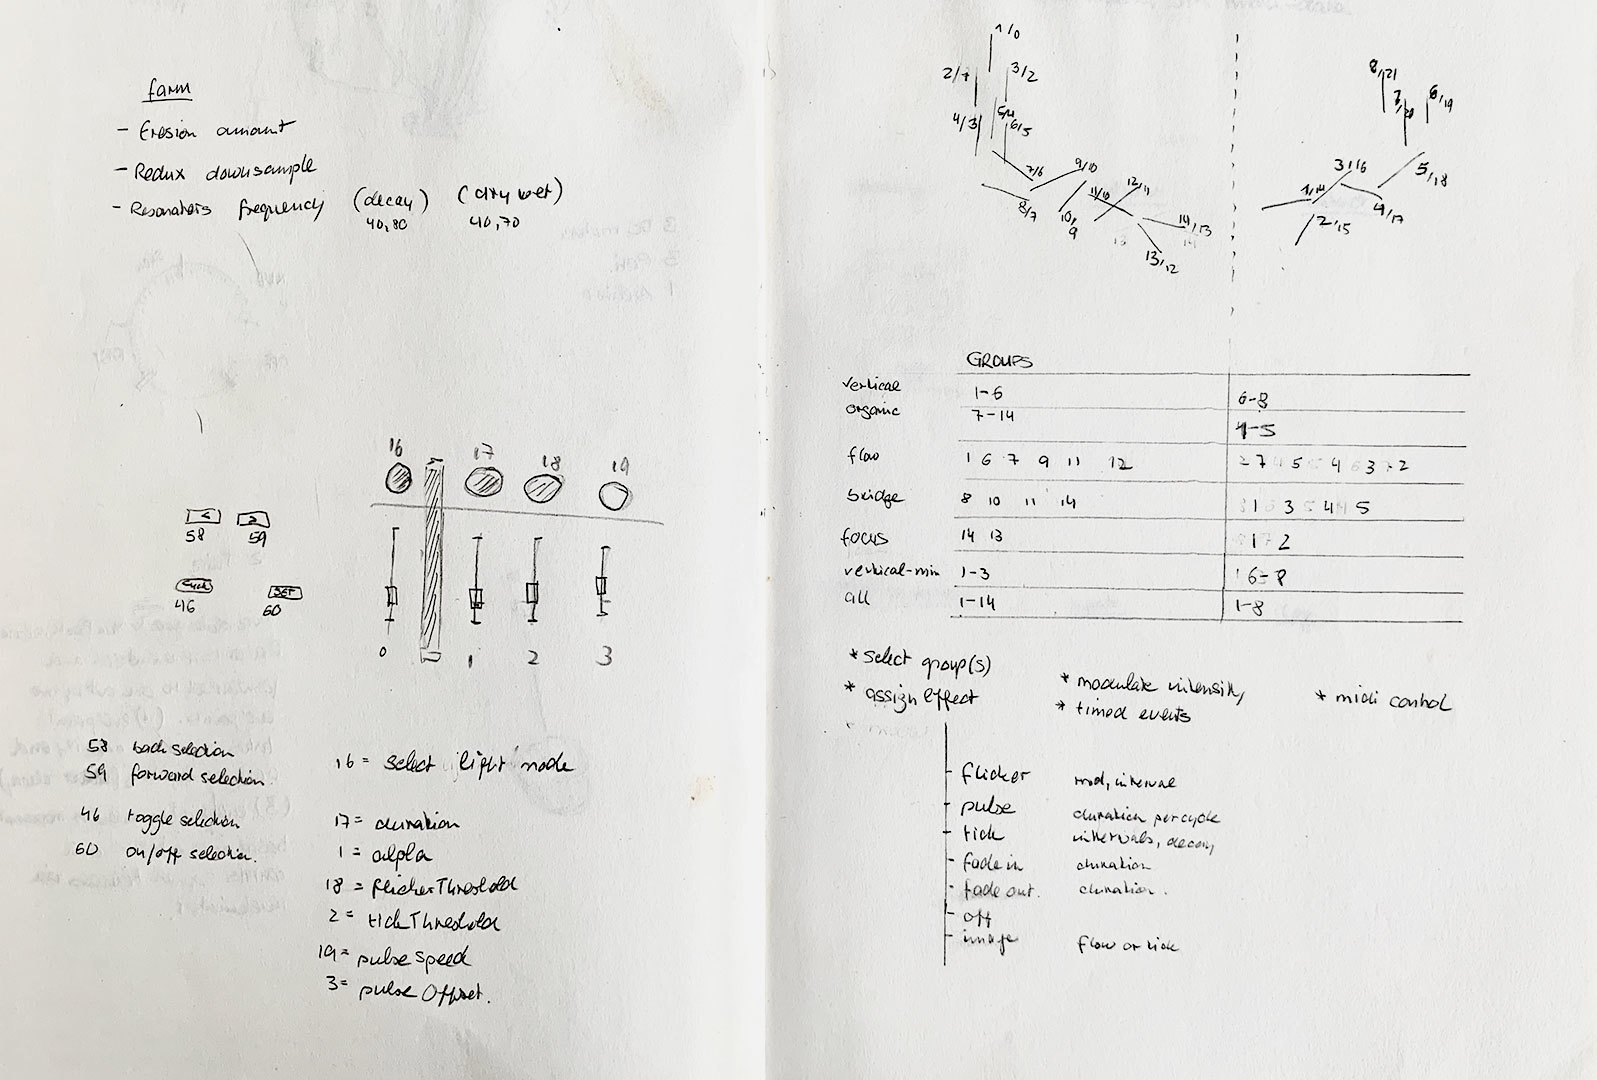 farm
- Erosion amount
- Redux downsample
- Resonators frequency (decay) (dry wet)
40,80 40,70
16 17 18 19
< >
58 59
cycle SET
46 60
0 1 2 3
58 back selection
59 forward selection.
46 toggle selection
60 on/off selection.
16 = select light mode
17 = duration
1 = alpha
18 = flickerThreshold
2 = tickThreshold
19 = pulse speed
3 = pulse Offset.
1/0
2/7 3/2
4/3 5/4
6/5
7/6 9/10
8/7 10/9 11/10 12/11
14/13
13/12
8/21
7/20 6/19
3/16 5/18
1/14 4/17
2/15
GROUPS
vertical 1-6 6-8
organic 7-14 1-5
flow 1 6 7 9 11 12 2 7 5 4 6 3 7 2
bridge 8 10 11 14 1 3 5 4 5
focus 14 13 1 2
vertical-min 1-3 6-8
all 1-14 1-8
* select group(s)
* assign effect
* modulate intensity
* timed events
* midi control
- flicker mod, interval
- pulse duration per cycle
- tick intervals, decay
- fade in duration
- fade out. duration.
- off
- image flow or tick